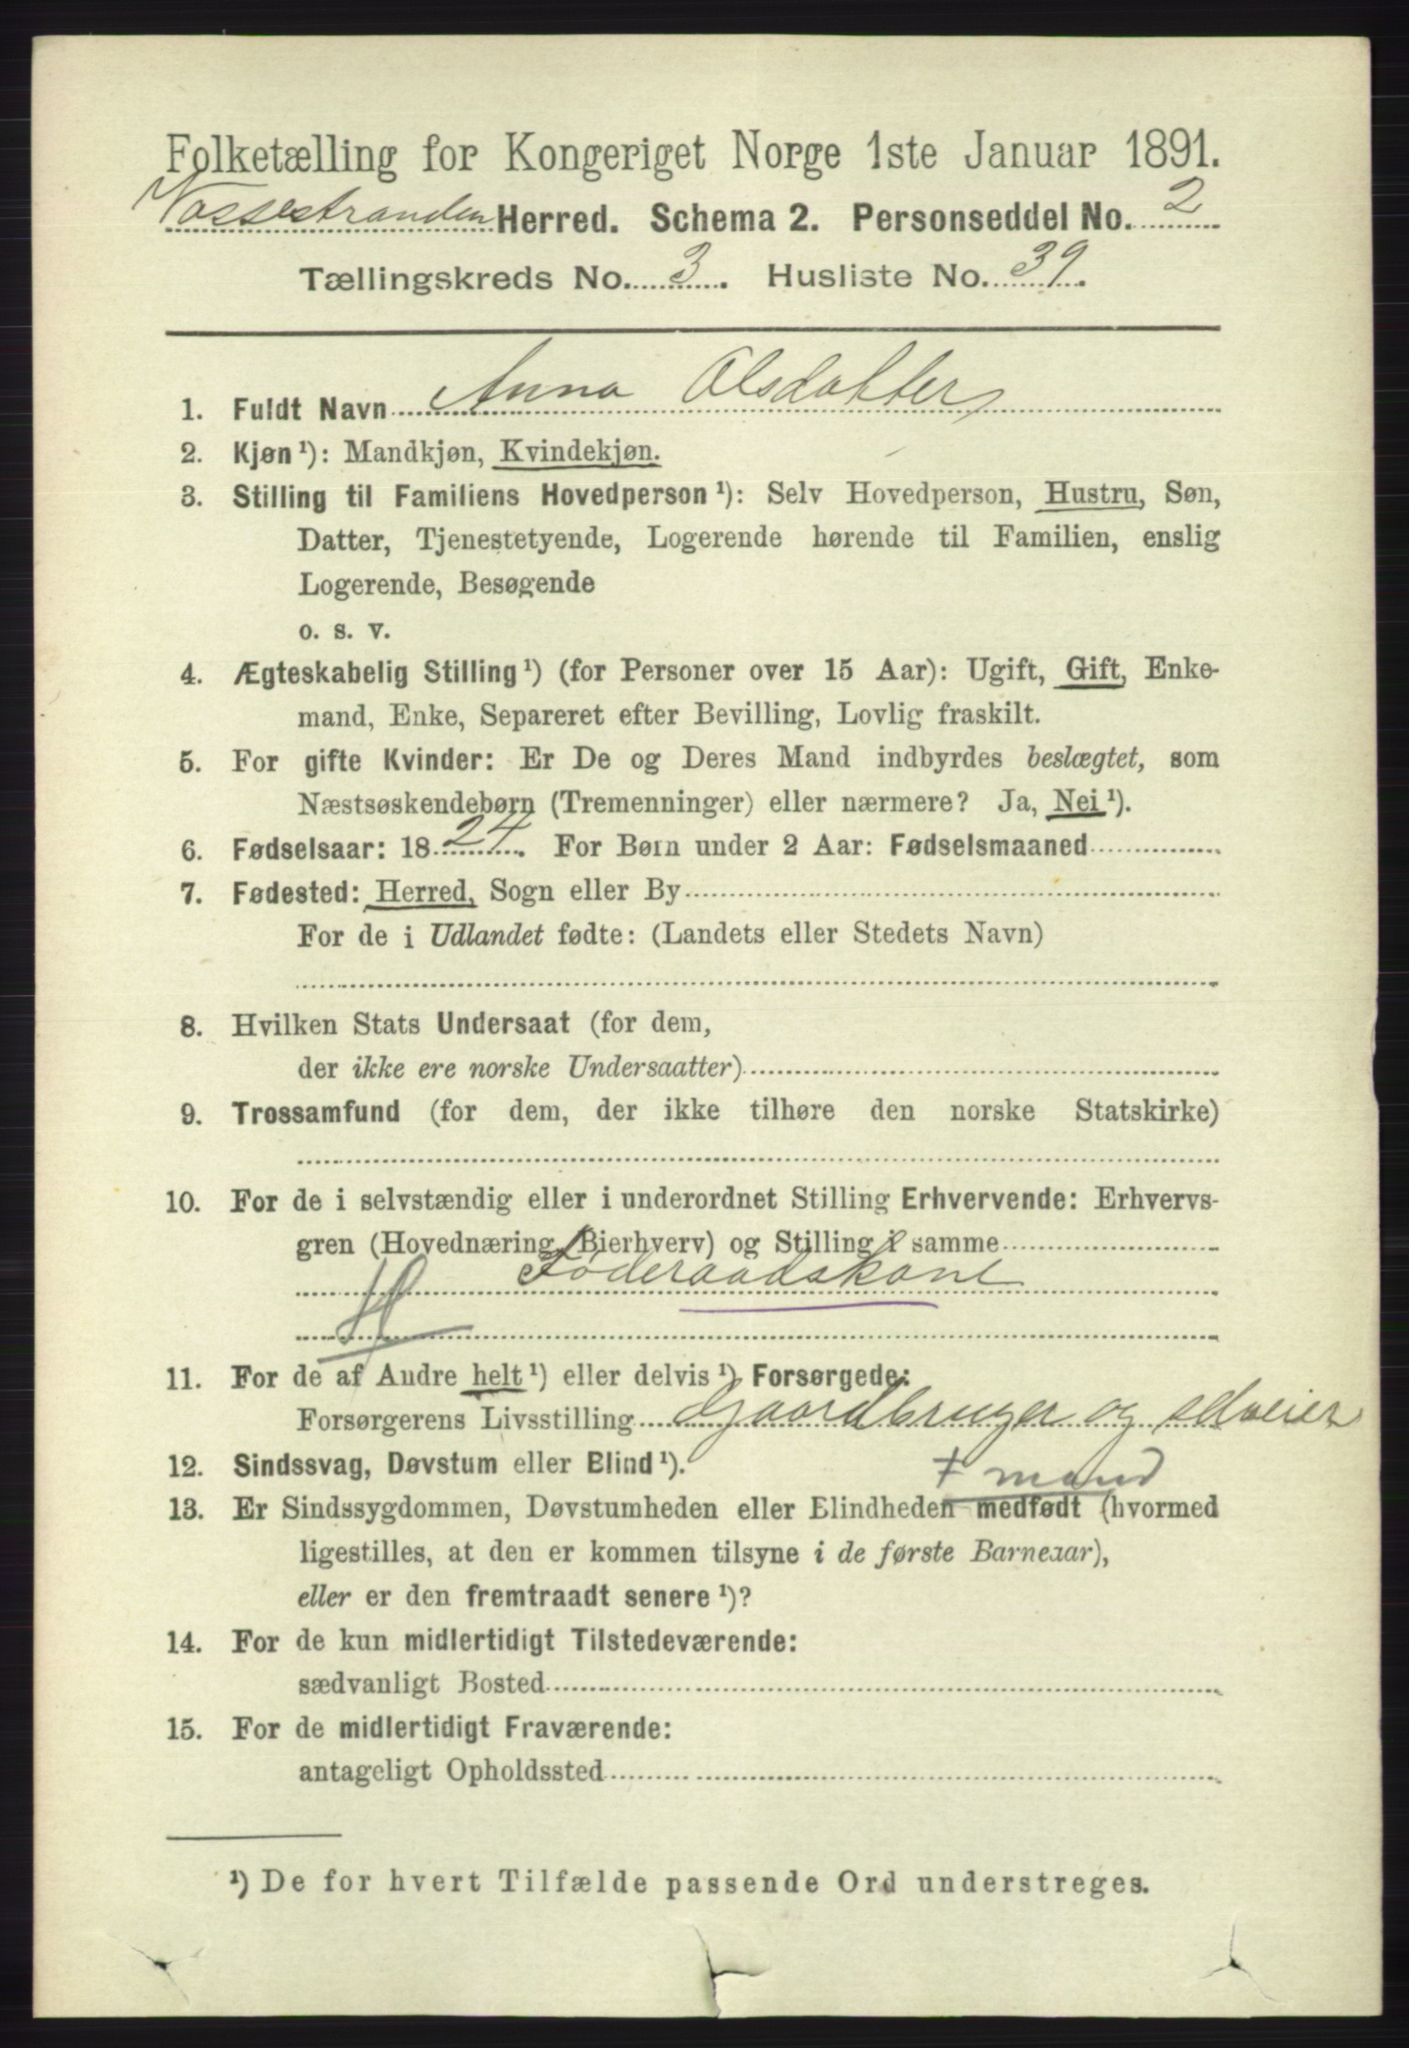 Folketælling for Kongeriget Norge 1ste Januar 1891.
Vossestranden Herred. Schema 2. Personseddel No. 2
Tællingskreds No. 3. Husliste No. 39.
1. Fuldt Navn Anna Olsdatter
2. Kjøn ¹): Mandkjøn, Kvindekjøn.
3. Stilling til Familiens Hovedperson ¹): Selv Hovedperson, Hustru, Søn,
Datter, Tjenestetyende, Logerende hørende til Familien, enslig
Logerende, Besøgende
o. s. v.
4. Ægteskabelig Stilling ¹) (for Personer over 15 Aar): Ugift, Gift, Enke-
mand, Enke, Separeret efter Bevilling, Lovlig fraskilt.
5. For gifte Kvinder: Er De og Deres Mand indbyrdes beslægtet, som
Næstsøskendebørn (Tremenninger) eller nærmere? Ja, Nei ¹).
6. Fødselsaar: 1824. For Børn under 2 Aar: Fødselsmaaned
7. Fødested: Herred, Sogn eller By
For de i Udlandet fødte: (Landets eller Stedets Navn)
8. Hvilken Stats Undersaat (for dem,
der ikke ere norske Undersaatter)
9. Trossamfund (for dem, der ikke tilhøre den norske Statskirke)
10. For de i selvstændig eller i underordnet Stilling Erhvervende: Erhvervs-
gren (Hovednæring, Bierhverv) og Stilling i samme
Føderaadskone
H
11. For de af Andre helt ¹) eller delvis ¹) Forsørgede:
Forsørgerens Livsstilling Gaardbruger og selveier
12. Sindssvag, Døvstum eller Blind ¹).
mand
13. Er Sindssygdommen, Døvstumheden eller Blindheden medfødt (hvormed
ligestilles, at den er kommen tilsyne i de første Barneaar),
eller er den fremtraadt senere ¹)?
14. For de kun midlertidigt Tilstedeværende:
sædvanligt Bosted
15. For de midlertidigt Fraværende:
antageligt Opholdssted
¹) De for hvert Tilfælde passende Ord understreges.